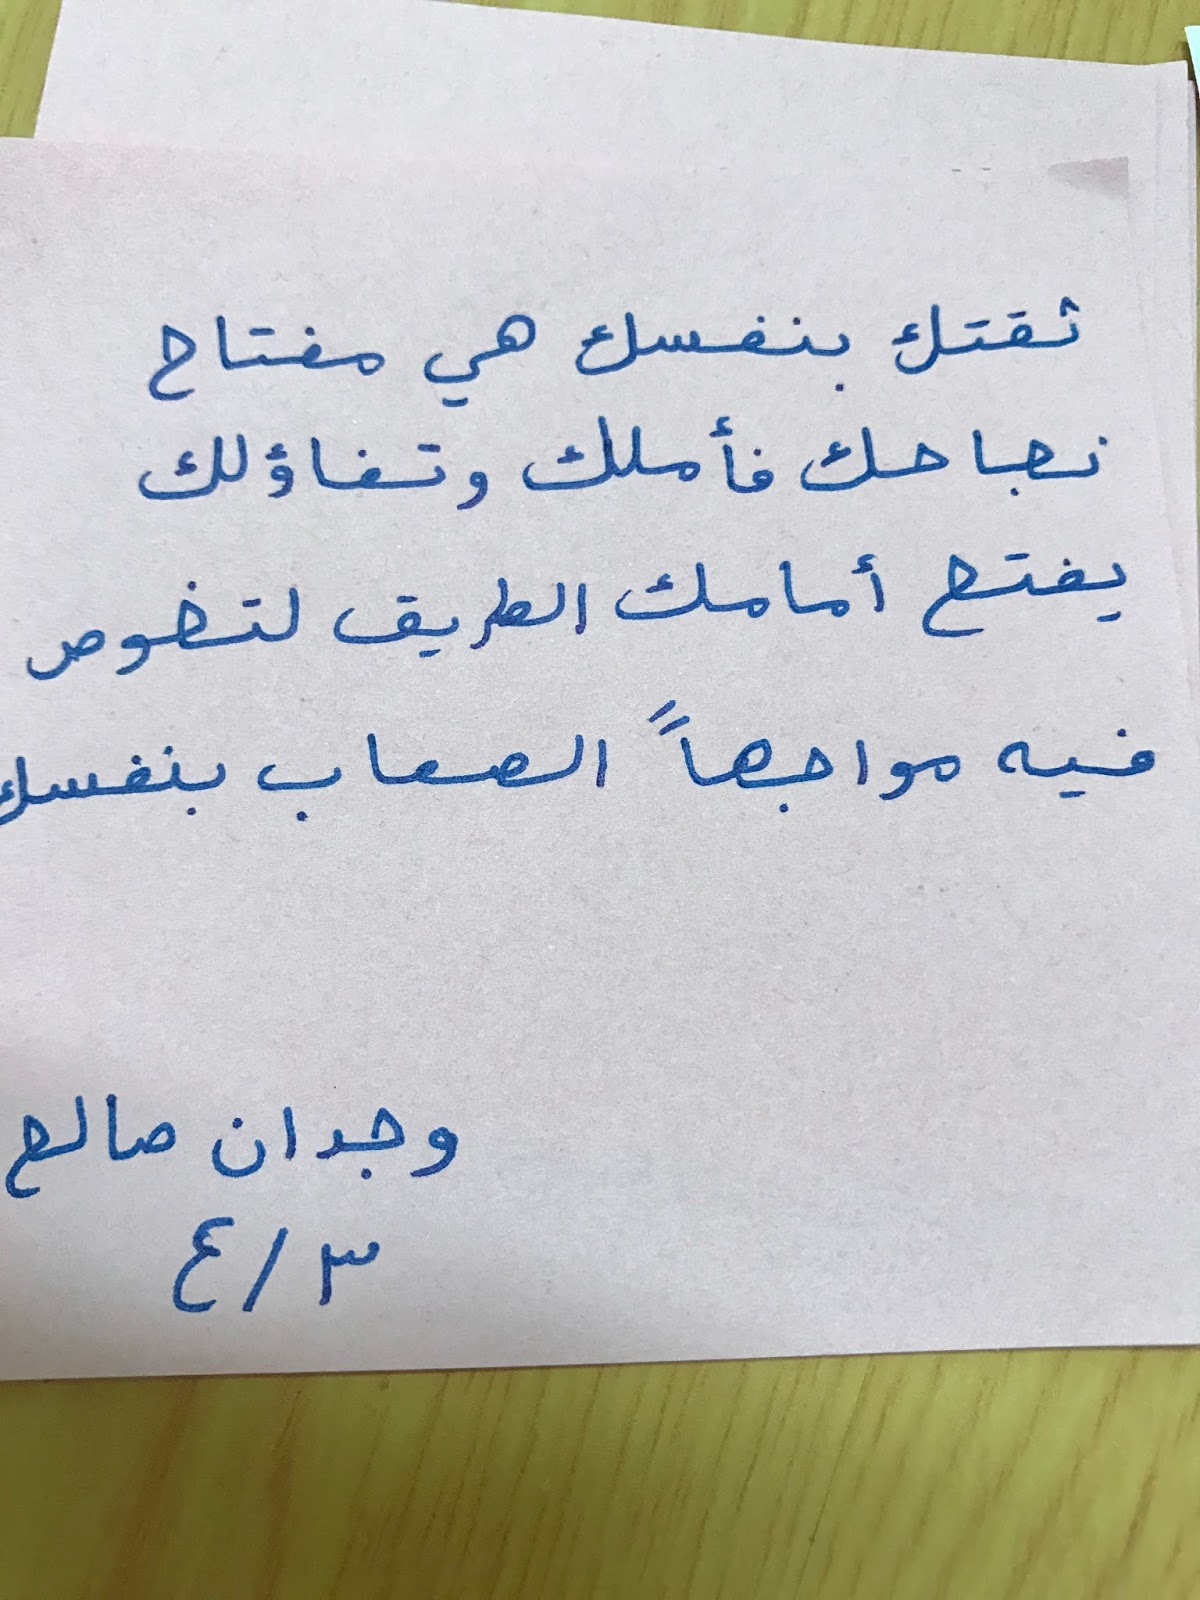 ثقتك بنفسك هي مفتاح
نجاحك فأملك وتفاؤلك
يفتح أمامك الطريق لتخوص
فيه مواجهاً الصعاب بنفسك
وجدان صالح
٣/٤